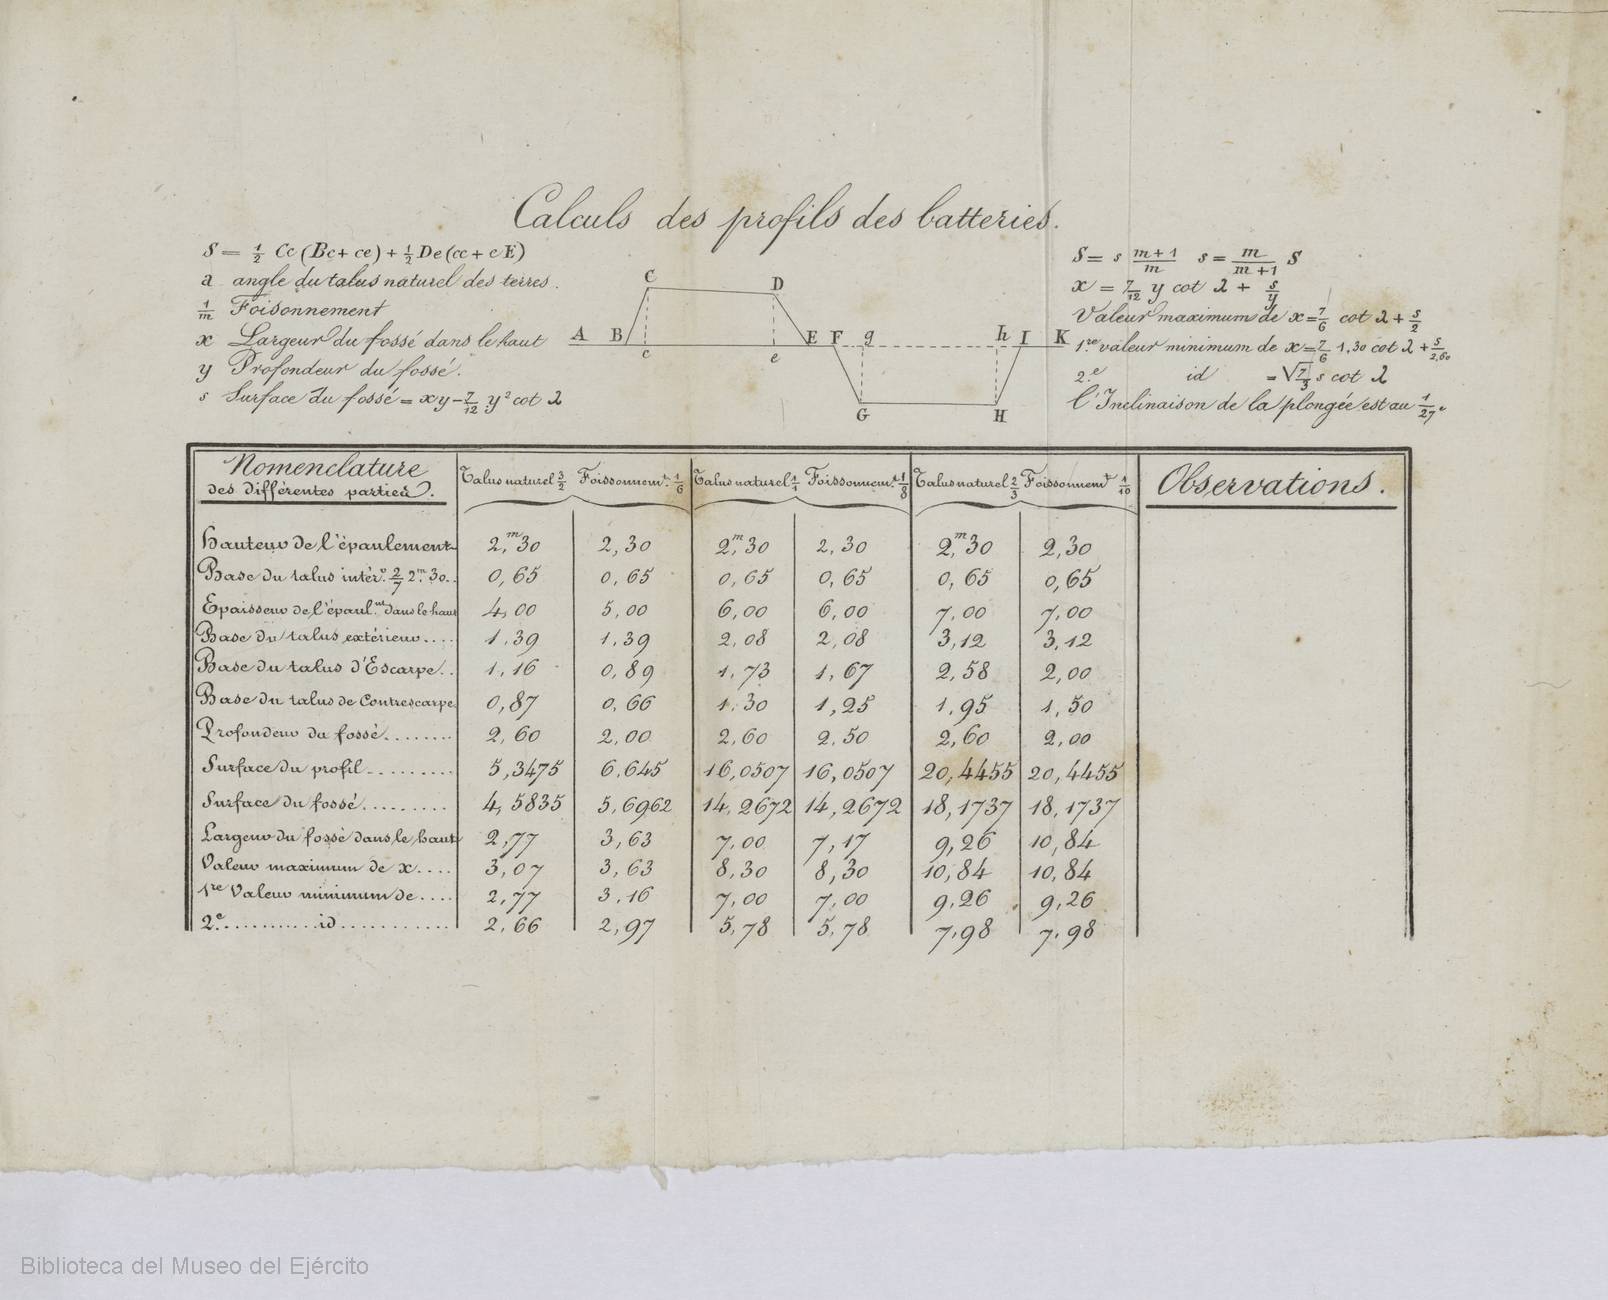 Calculs des profils des batteries.
S = 1/2 Cc (Bc + ce) + 1/2 De (cc + eE)
a angle du talus naturel des terres.
1/m Foisonnement
x Largeur du fossé dans le haut
y Profondeur du fossé.
s Surface du fossé = xy - 7/12 y² cot λ
A B C D E F g h I K
c e
G H
S = s m+1/m s = m/m+1 S
x = 7/12 y cot λ + s/y
Valeur maximum de x = 7/6 cot λ + s/2
1.re valeur minimum de x = 7/6 1,30 cot λ + s/2,60
2.e id = √7/3 s cot λ
l'Inclinaison de la plongée est au 1/27e
Nomenclature des différentes parties. | Talus naturel 3/2 Foisonnem.t 1/6 | Talus naturel 1/1 Foissonnem.t 1/8 | Talus naturel 2/3 Foissonnem.t 1/10 | Observations.
Hauteur de l'épaulement 2,m30 2,30 2,m30 2,30 2,m30 2,30
Base du talus intér.r 2/7 2m.30.. 0,65 0,65 0,65 0,65 0,65 0,65
Epaisseur de l'épaul.mt dans le haut 4,00 5,00 6,00 6,00 7,00 7,00
Base du talus extérieur.... 1,39 1,39 2,08 2,08 3,12 3,12
Base du talus d'Escarpe.. 1,16 0,89 1,73 1,67 2,58 2,00
Base du talus de Contrescarpe 0,87 0,66 1,30 1,25 1,95 1,50
Profondeur du fossé........ 2,60 2,00 2,60 2,50 2,60 2,00
Surface du profil.......... 5,3475 6,645 16,0507 16,0507 20,4455 20,4455
Surface du fossé......... 4,5835 5,6962 14,2672 14,2672 18,1737 18,1737
Largeur du fossé dans le haut 2,77 3,63 7,00 7,17 9,26 10,84
Valeur maximum de x.... 3,07 3,63 8,30 8,30 10,84 10,84
1re Valeur minimum de.... 2,77 3,16 7,00 7,00 9,26 9,26
2.e...........id............ 2,66 2,97 5,78 5,78 7,98 7,98
Biblioteca del Museo del Ejército